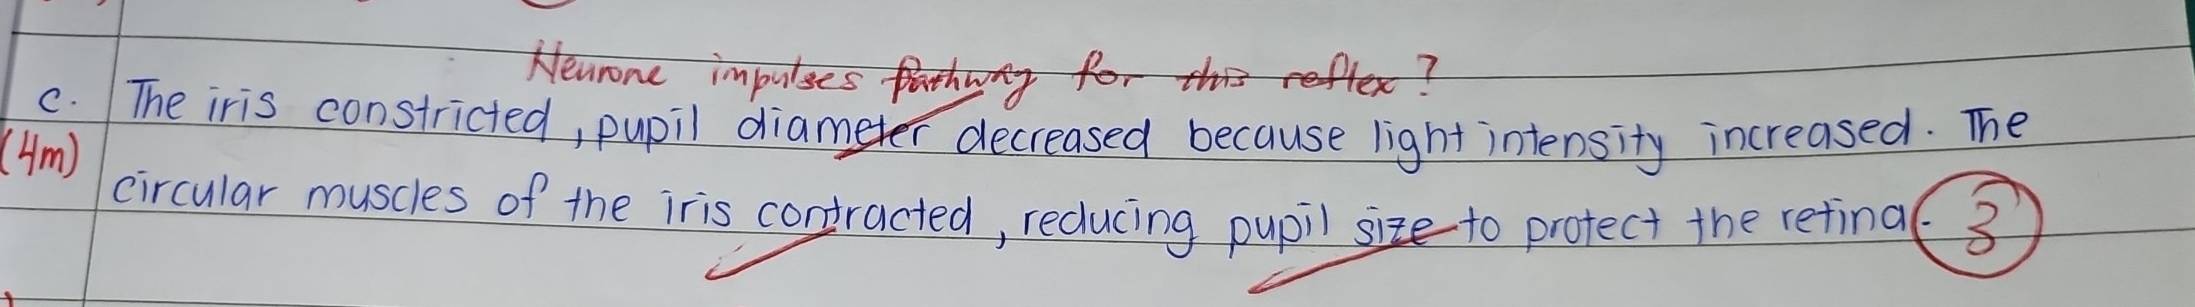 Neurone impulses pathway for this reflex?
c. The iris constricted, pupil diameter decreased because light intensity increased. The
(4m)
circular muscles of the iris contracted, reducing pupil size to protect the retina. 3